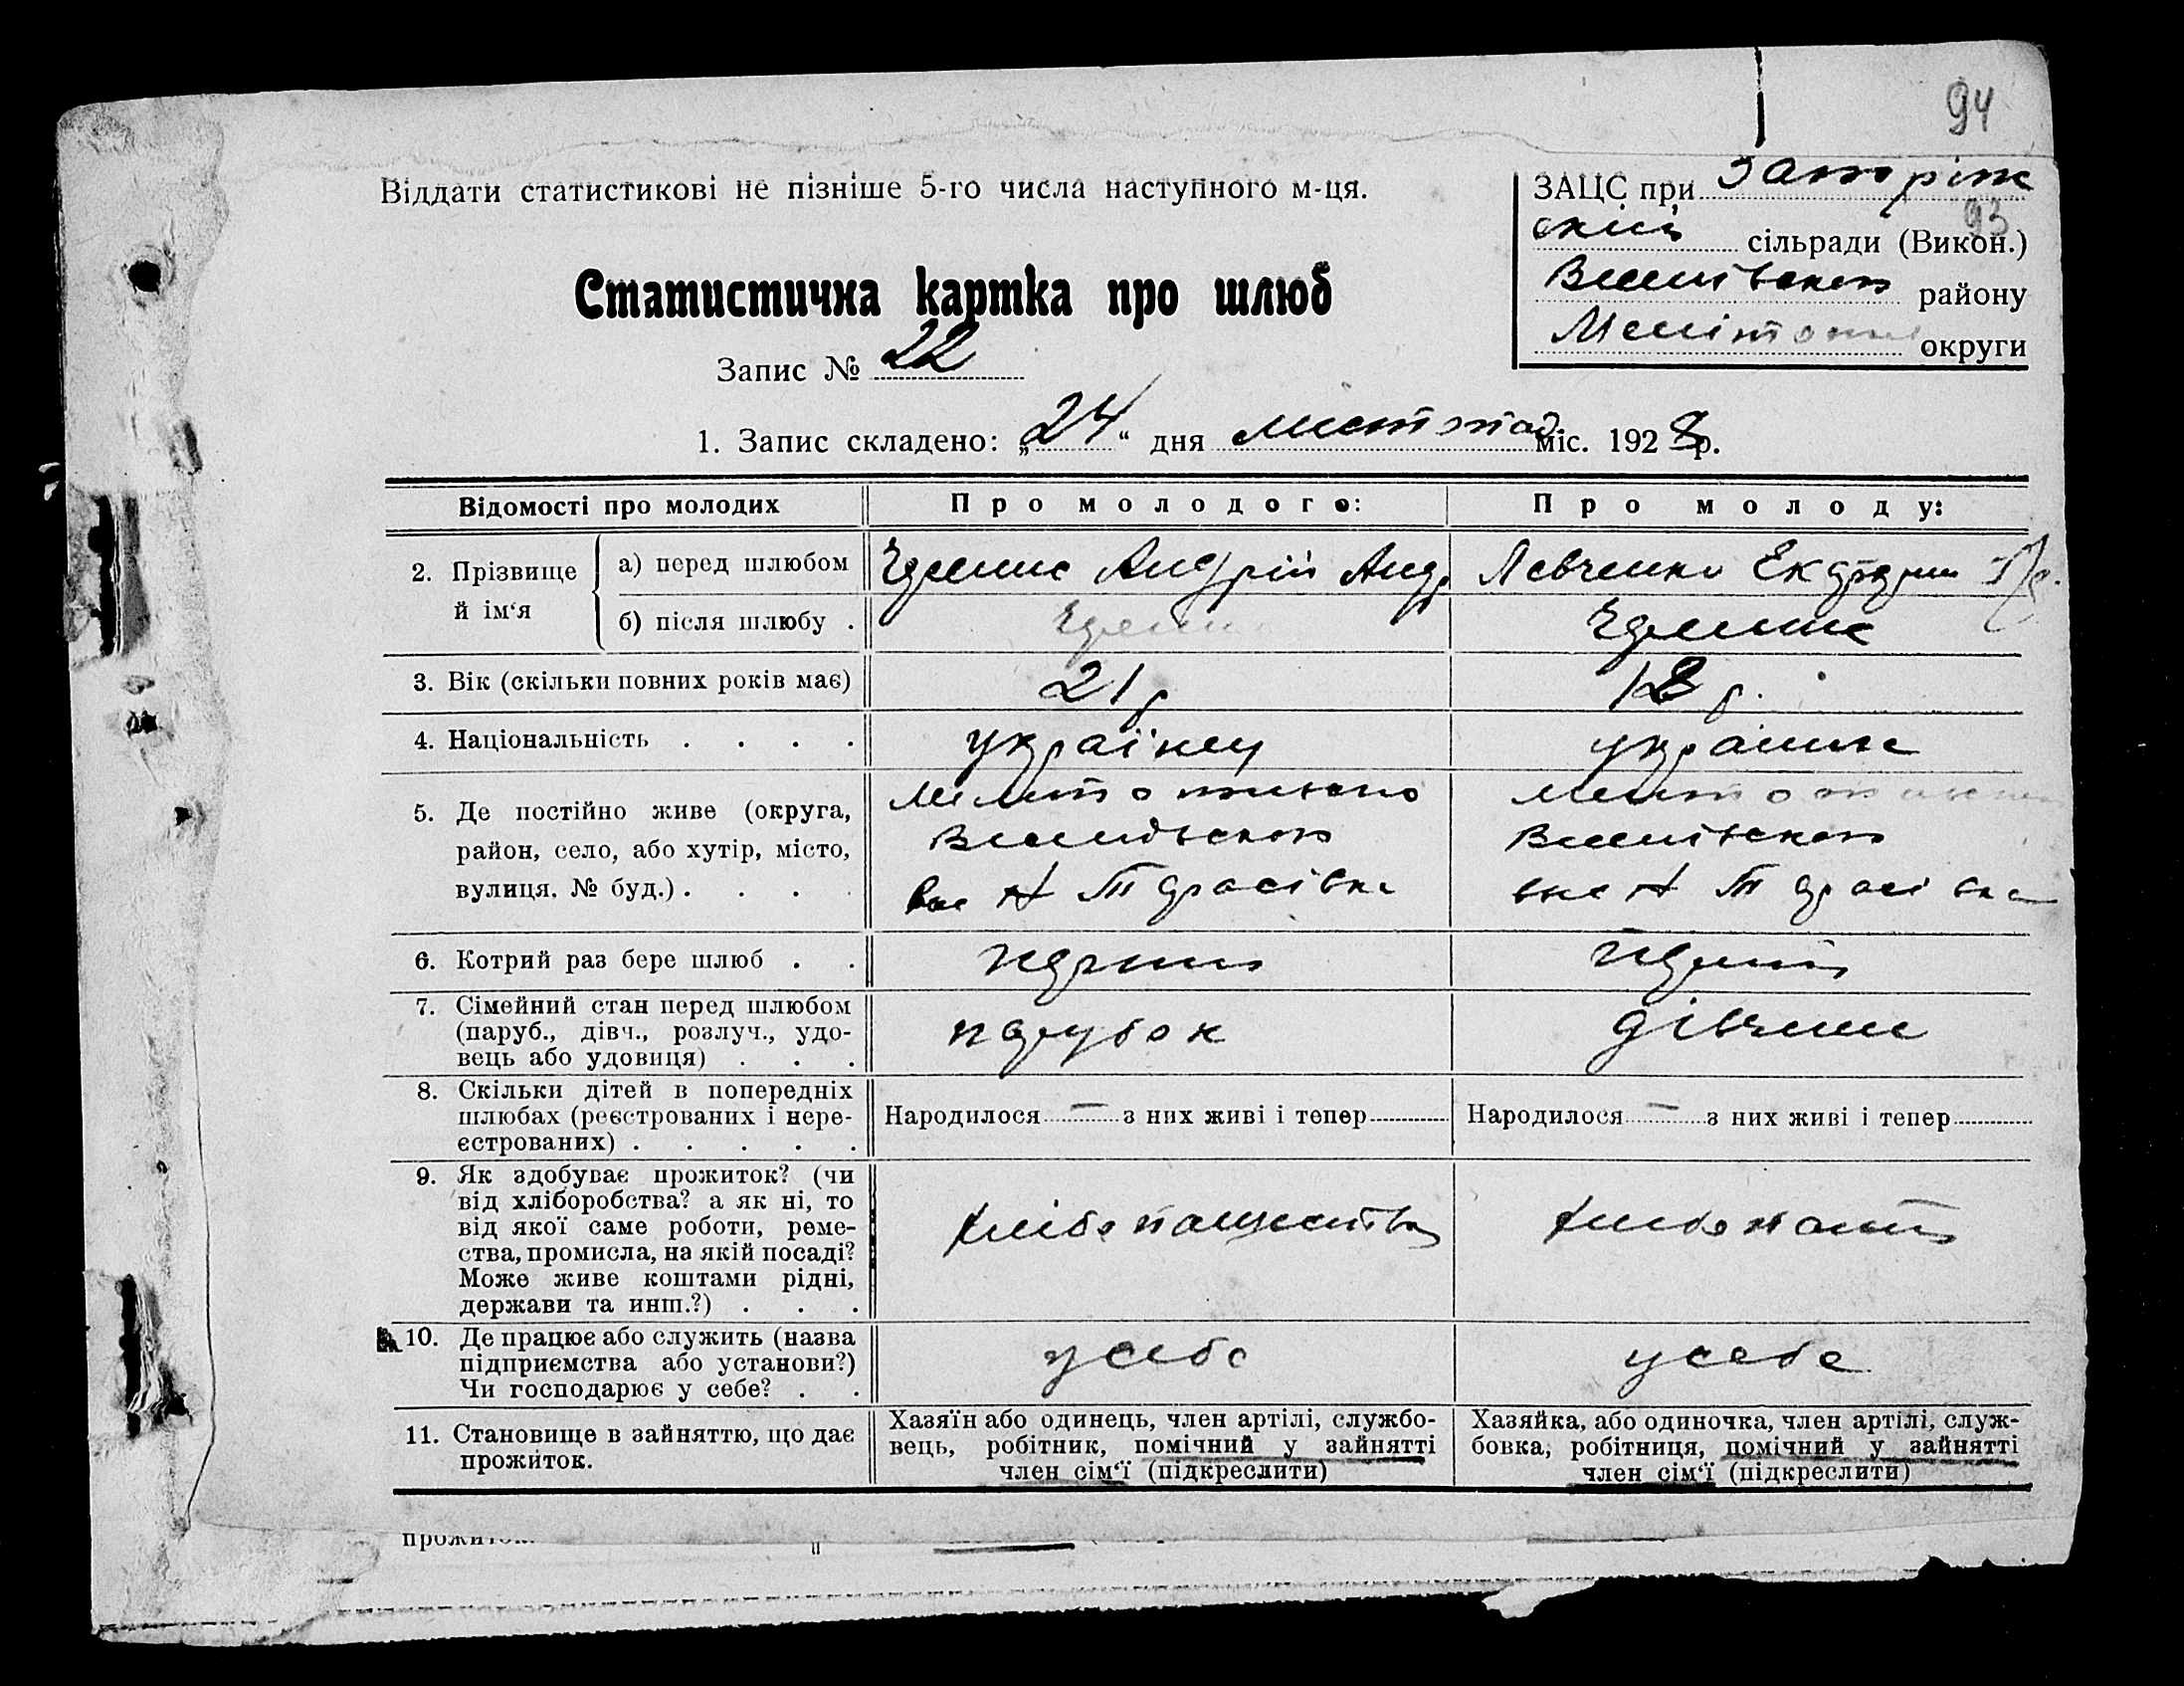 94
Віддати статистикові не пізніше 5-го числа наступного м-ця.
ЗАЦС при
93
ській сільради (Викон.)
району
округи
Статистична картка про шлюб
Запис № 22
1. Запис складено: „24“ дня листопад міс. 1928 р.
Відомості про молодих
Про молодого:
Про молоду:
2. Прізвище й ім‘я
а) перед шлюбом
Андрій Андр
Левченко
б) після шлюбу .
3. Вік (скільки повних років має)
21 р
18 р.
4. Національність . . . .
українец
українка
5. Де постійно живе (округа,
район, село, або хутір, місто,
вулиця, № буд.) . . . .
Н Тарасівка
Н Тарасівка
6. Котрий раз бере шлюб . .
перший
перший
7. Сімейний стан перед шлюбом
(паруб., дівч., розлуч., удо-
вець або удовиця) . . .
парубок
дівчина
8. Скільки дітей в попередніх
шлюбах (реєстрованих і нере-
єстрованих) . . . . .
Народилося — з них живі і тепер
Народилося — з них живі і тепер
9. Як здобуває прожиток? (чи
від хліборобства? а як ні, то
від якої саме роботи, реме-
ства, промисла, на якій посаді?
Може живе коштами рідні,
держави та инш.?) . . .
10. Де працює або служить (назва
підприємства або установи?)
Чи господарює у себе? . .
у себе
у себе
11. Становище в зайняттю, що дає
прожиток.
Хазяїн або одинець, член артілі, службо-
вець, робітник, помічний у зайнятті
член сім‘ї (підкреслити)
Хазяйка, або одиночка, член артілі, служ-
бовка, робітниця, помічний у зайнятті
член сім‘ї (підкреслити)